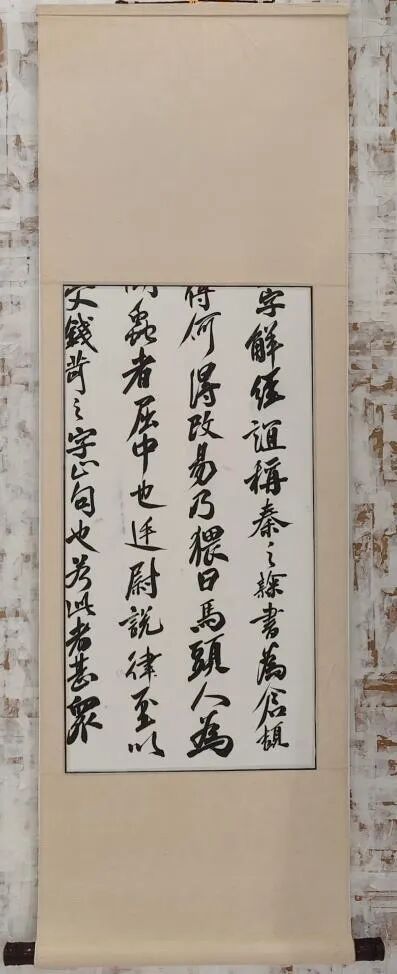 字解經誼稱秦之隸書為倉頡
何得改易乃猥曰馬頭人為
蟲者屈中也廷尉說律至以
錢苛之字止句也若此者甚眾